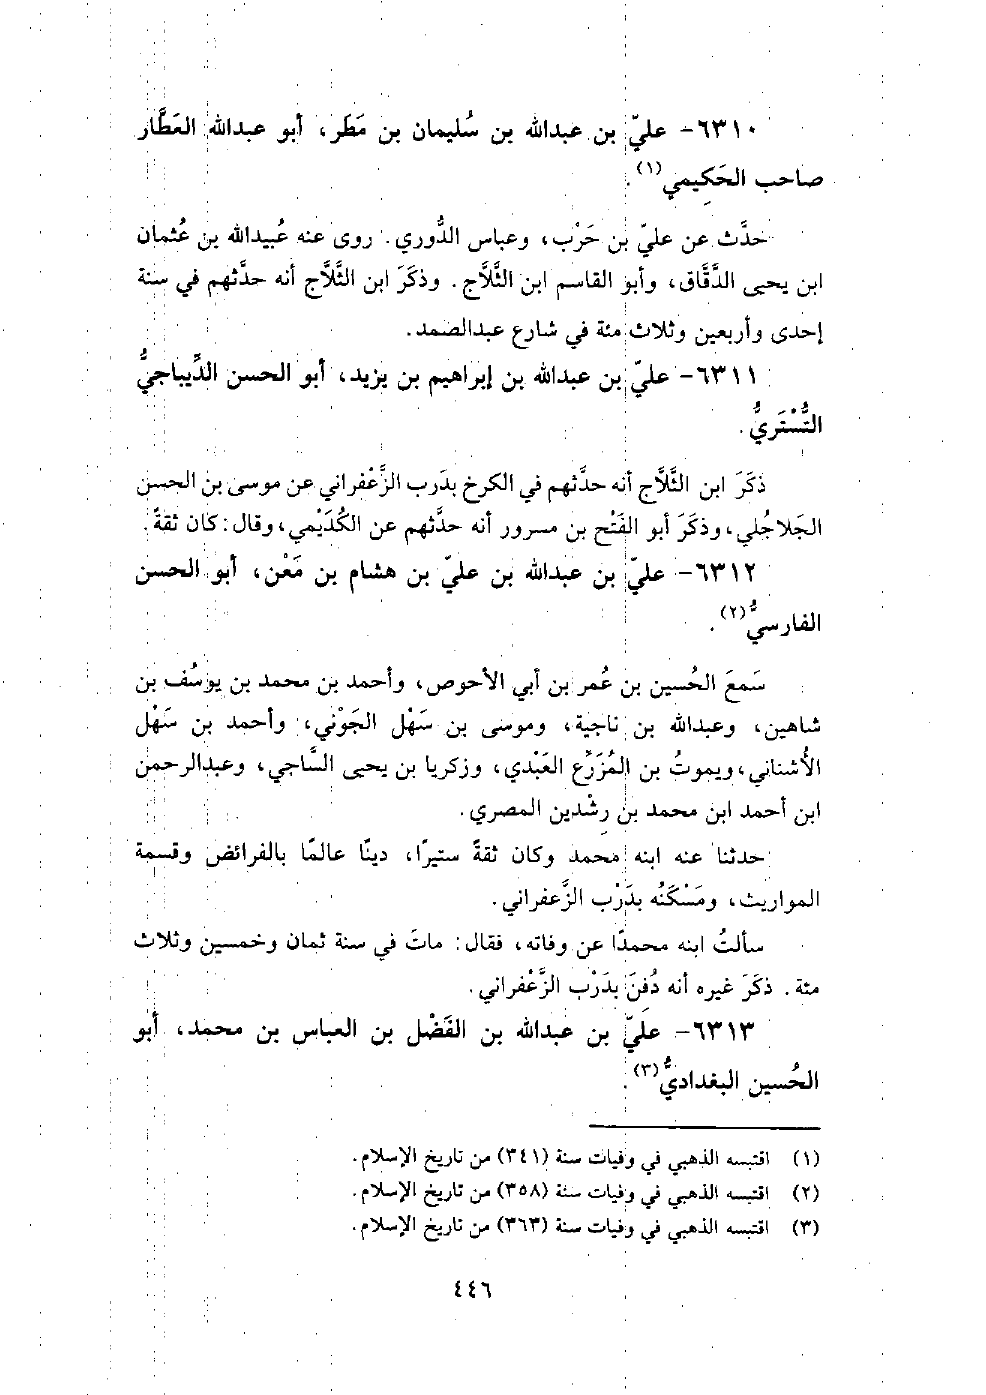 ٦٣١٠- عليّ بن عبدالله بن سُليمان بن مَطَر، أبو عبدالله العَطَّار
صاحب الحَكِيمي(١).
حدَّث عن عليّ بن حَرْب، وعباس الدُّوري. روى عنه عُبيدالله بن عُثمان
ابن يحيى الدَّقَّاق، وأبو القاسم ابن الثَّلَّاج. وذكَرَ ابن الثَّلَّاج أنه حدَّثهم في سنة
إحدى وأربعين وثلاث مئة في شارع عبدالصمد.
٦٣١١- عليّ بن عبدالله بن إبراهيم بن يزيد، أبو الحسن الدِّيباجيُّ
التُّسْتَريُّ.
ذكَرَ ابن الثَّلَّاج أنه حدَّثهم في الكرخ بدَرب الزَّعْفراني عن موسى بن الحسن
الجَلاجُلي، وذكَرَ أبو الفَتْح بن مسرور أنه حدَّثهم عن الكُدَيْمي، وقال: كان ثقةً.
٦٣١٢- عليّ بن عبدالله بن عليّ بن هشام بن مَعْن، أبو الحسن
الفارسيُّ(٢).
سَمعَ الحُسين بن عُمر بن أبي الأحوص، وأحمد بن محمد بن يوسُف بن
شاهين، وعبدالله بن ناجية، وموسى بن سَهْل الجَوْني، وأحمد بن سَهْل
الأُشناني، ويموتُ بن المُزَرِّع العَبْدي، وزكريا بن يحيى السَّاجي، وعبدالرحمن
ابن أحمد ابن محمد بن رِشْدين المصري.
حدثنا عنه ابنه محمد وكان ثقةً ستيرًا، دينًا عالمًا بالفرائض وقسمة
المواريث، ومَسْكَنُه بدَرْب الزَّعفراني.
سألتُ ابنه محمدًا عن وفاته، فقال: ماتَ في سنة ثمان وخمسين وثلاث
مئة. ذكَرَ غيره أنه دُفِنَ بدَرْب الزَّعْفراني.
٦٣١٣- عليّ بن عبدالله بن الفَضْل بن العباس بن محمد، أبو
الحُسين البغداديُّ(٣).
(١) اقتبسه الذهبي في وفيات سنة (٣٤١) من تاريخ الإسلام.
(٢) اقتبسه الذهبي في وفيات سنة (٣٥٨) من تاريخ الإسلام.
(٣) اقتبسه الذهبي في وفيات سنة (٣٦٣) من تاريخ الإسلام.
٤٤٦